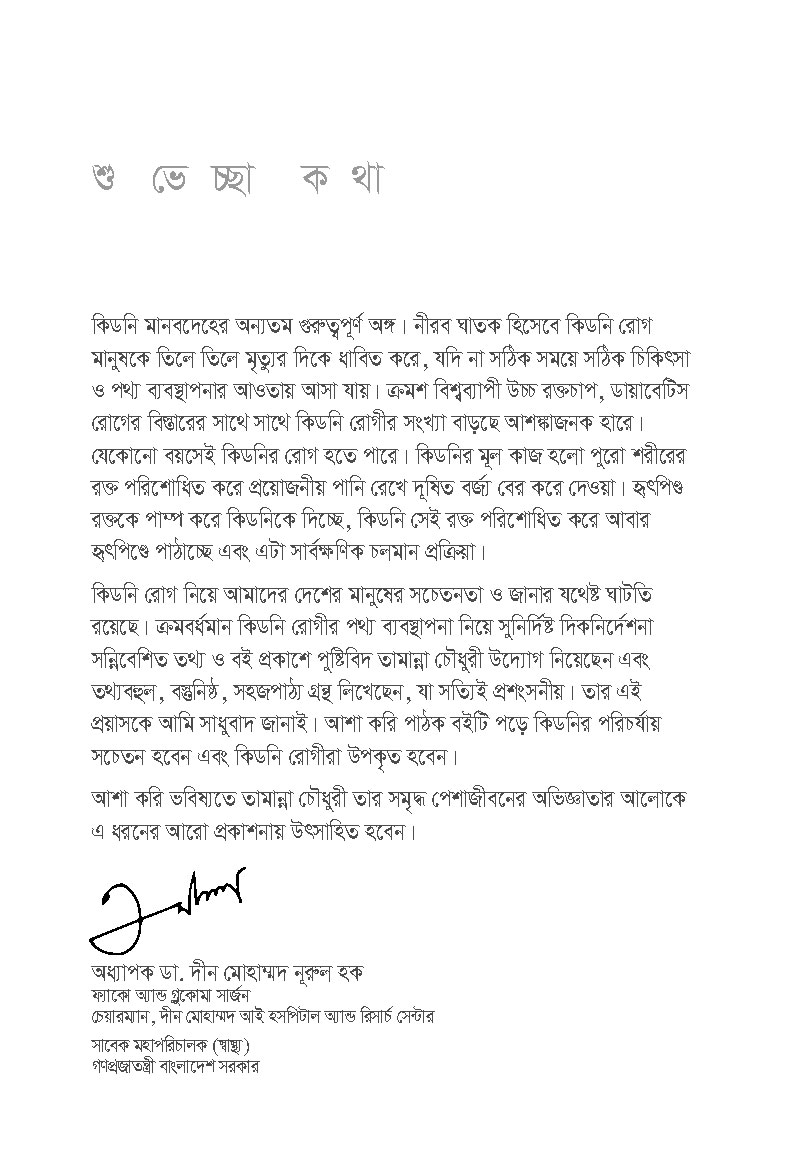 শুভেচ্ছা কথা
কিডনি মানবদেহের অন্যতম গুরুত্বপূর্ণ অঙ্গ। নীরব ঘাতক হিসেবে কিডনি রোগ
মানুষকে তিলে তিলে মৃত্যুর দিকে ধাবিত করে, যদি না সঠিক সময়ে সঠিক চিকিৎসা
ও পথ্য ব্যবস্থাপনার আওতায় আসা যায়। ক্রমশ বিশ্বব্যাপী উচ্চ রক্তচাপ, ডায়াবেটিস
রোগের বিস্তারের সাথে সাথে কিডনি রোগীর সংখ্যা বাড়ছে আশঙ্কাজনক হারে।
যেকোনো বয়সেই কিডনির রোগ হতে পারে। কিডনির মূল কাজ হলো পুরো শরীরের
রক্ত পরিশোধিত করে প্রয়োজনীয় পানি রেখে দূষিত বর্জ্য বের করে দেওয়া। হৃৎপিণ্ড
রক্তকে পাম্প করে কিডনিকে দিচ্ছে, কিডনি সেই রক্ত পরিশোধিত করে আবার
হৃৎপিণ্ডে পাঠাচ্ছে এবং এটা সার্বক্ষণিক চলমান প্রক্রিয়া।
কিডনি রোগ নিয়ে আমাদের দেশের মানুষের সচেতনতা ও জানার যথেষ্ট ঘাটতি
রয়েছে। ক্রমবর্ধমান কিডনি রোগীর পথ্য ব্যবস্থাপনা নিয়ে সুনির্দিষ্ট দিকনির্দেশনা
সন্নিবেশিত তথ্য ও বই প্রকাশে পুষ্টিবিদ তামান্না চৌধুরী উদ্যোগ নিয়েছেন এবং
তথ্যবহুল, বস্তুনিষ্ঠ, সহজপাঠ্য গ্রন্থ লিখেছেন, যা সত্যিই প্রশংসনীয়। তার এই
প্রয়াসকে আমি সাধুবাদ জানাই। আশা করি পাঠক বইটি পড়ে কিডনির পরিচর্যায়
সচেতন হবেন এবং কিডনি রোগীরা উপকৃত হবেন।
আশা করি ভবিষ্যতে তামান্না চৌধুরী তার সমৃদ্ধ পেশাজীবনের অভিজ্ঞাতার আলোকে
এ ধরনের আরো প্রকাশনায় উৎসাহিত হবেন।
অধ্যাপক ডা. দীন মোহাম্মদ নূরুল হক
ফ্যাকো অ্যান্ড গ্লুকোমা সার্জন
চেয়ারম্যান, দীন মোহাম্মদ আই হসপিটাল অ্যান্ড রিসার্চ সেন্টার
সাবেক মহাপরিচালক (স্বাস্থ্য)
গণপ্রজাতন্ত্রী বাংলাদেশ সরকার